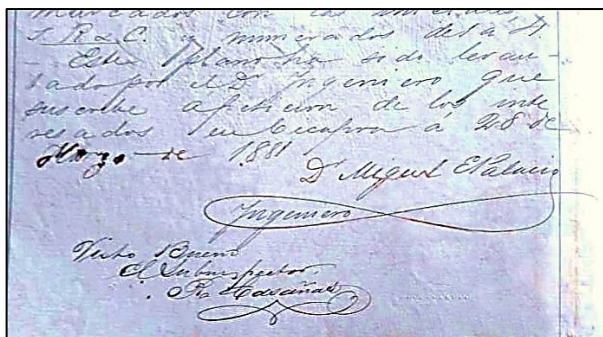 marcados con las iniciales
J. R & C. y numerados del 1 a 4.
- Este plano ha sido levan-
tado por el D.r Ingeniero que
suscribe a peticion de los inte
resados en Cucapra á 28 de
Marzo de 1881
D.r Miguel E Palacio
Ingeniero
Visto Bueno
El Subinspector.
R. Mascuñas